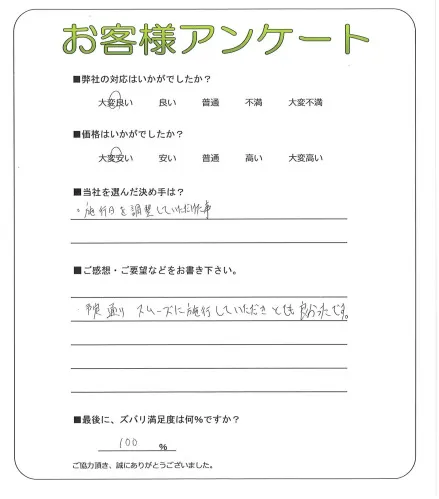 お客様アンケート
■弊社の対応はいかがでしたか？
大変良い 良い 普通 不満 大変不満
■価格はいかがでしたか？
大変安い 安い 普通 高い 大変高い
■当社を選んだ決め手は？
・施行日を調整していただけた事
■ご感想・ご要望などをお書き下さい。
・予定通り スムーズに施行していただきとても良かったです。
■最後に、ズバリ満足度は何%ですか？
100 %
ご協力頂き、誠にありがとうございました。